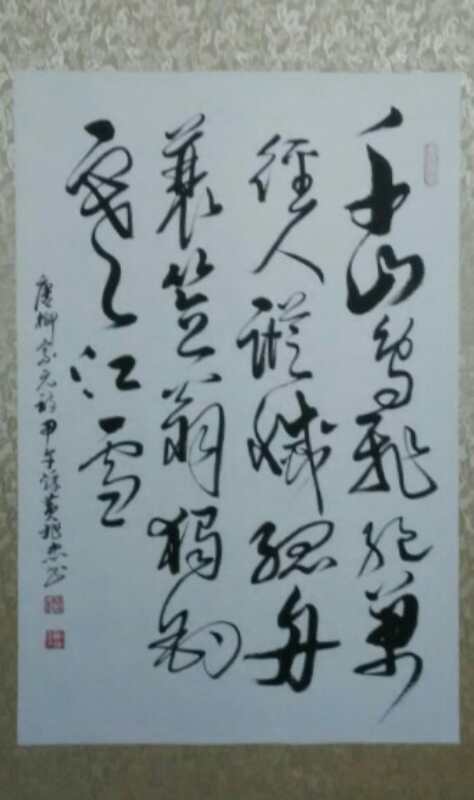 千山鳥飛絕萬
徑人蹤滅孤舟
蓑笠翁獨釣
寒江雪
唐柳宗元詩甲午黃书